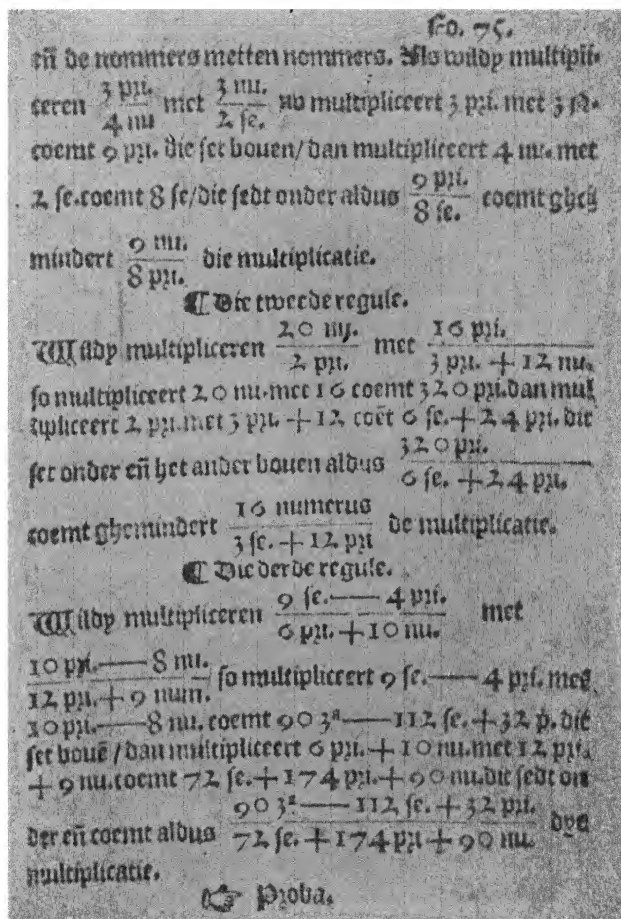 Fo. 75.
en̄ de nommers metten nommers. Als wildy multipli-
ceren 3 pri./4 nu met 3 nu./2 se. so multipliceert 3 pri. met 3 N.
coemt 9 pri. die set bouen/ dan multipliceert 4 nu. met
2 se. coemt 8 se/die sedt onder aldus 9 pri./8 se. coemt ghe
mindert 9 nu./8 pri. die multiplicatie.
¶ Die tweede regule.
Wildy multipliceren 20 nu./2 pri. met 16 pri./3 pri. + 12 nu.
so multipliceert 20 nu. met 16 coemt 320 pri. dan mul
tipliceert 2 pri. met 3 pri. + 12 coēt 6 se. + 24 pri. die
set onder en̄ het ander bouen aldus 320 pri./6 se. + 24 pri.
coemt ghemindert 16 numerus/3 se. + 12 pri de multiplicatie.
¶ Die derde regule.
Wildy multipliceren 9 se. — 4 pri./6 pri. + 10 nu. met
10 pri. — 8 nu./12 pri. + 9 num. so multipliceert 9 se. — 4 pri. met
10 pri. — 8 nu. coemt 90 3ª — 112 se. + 32 p. die
set bouē / dan multipliceert 6 pri. + 10 nu. met 12 pri.
+ 9 nu. coemt 72 se. + 174 pri. + 90 nu. die sedt on
der en̄ coemt aldus 90 3ª — 112 se. + 32 pri./72 se. + 174 pri + 90 nu. dye
multiplicatie.
☞ Proba.